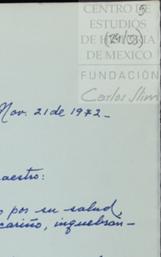 5
CENTRO DE
ESTUDIOS
DE HISTORIA
DE MEXICO
FUNDACIÓN
Carlos Slim
Nov. 21 de 1972 -
aestro:
por su salud,
cariño, inquebran-